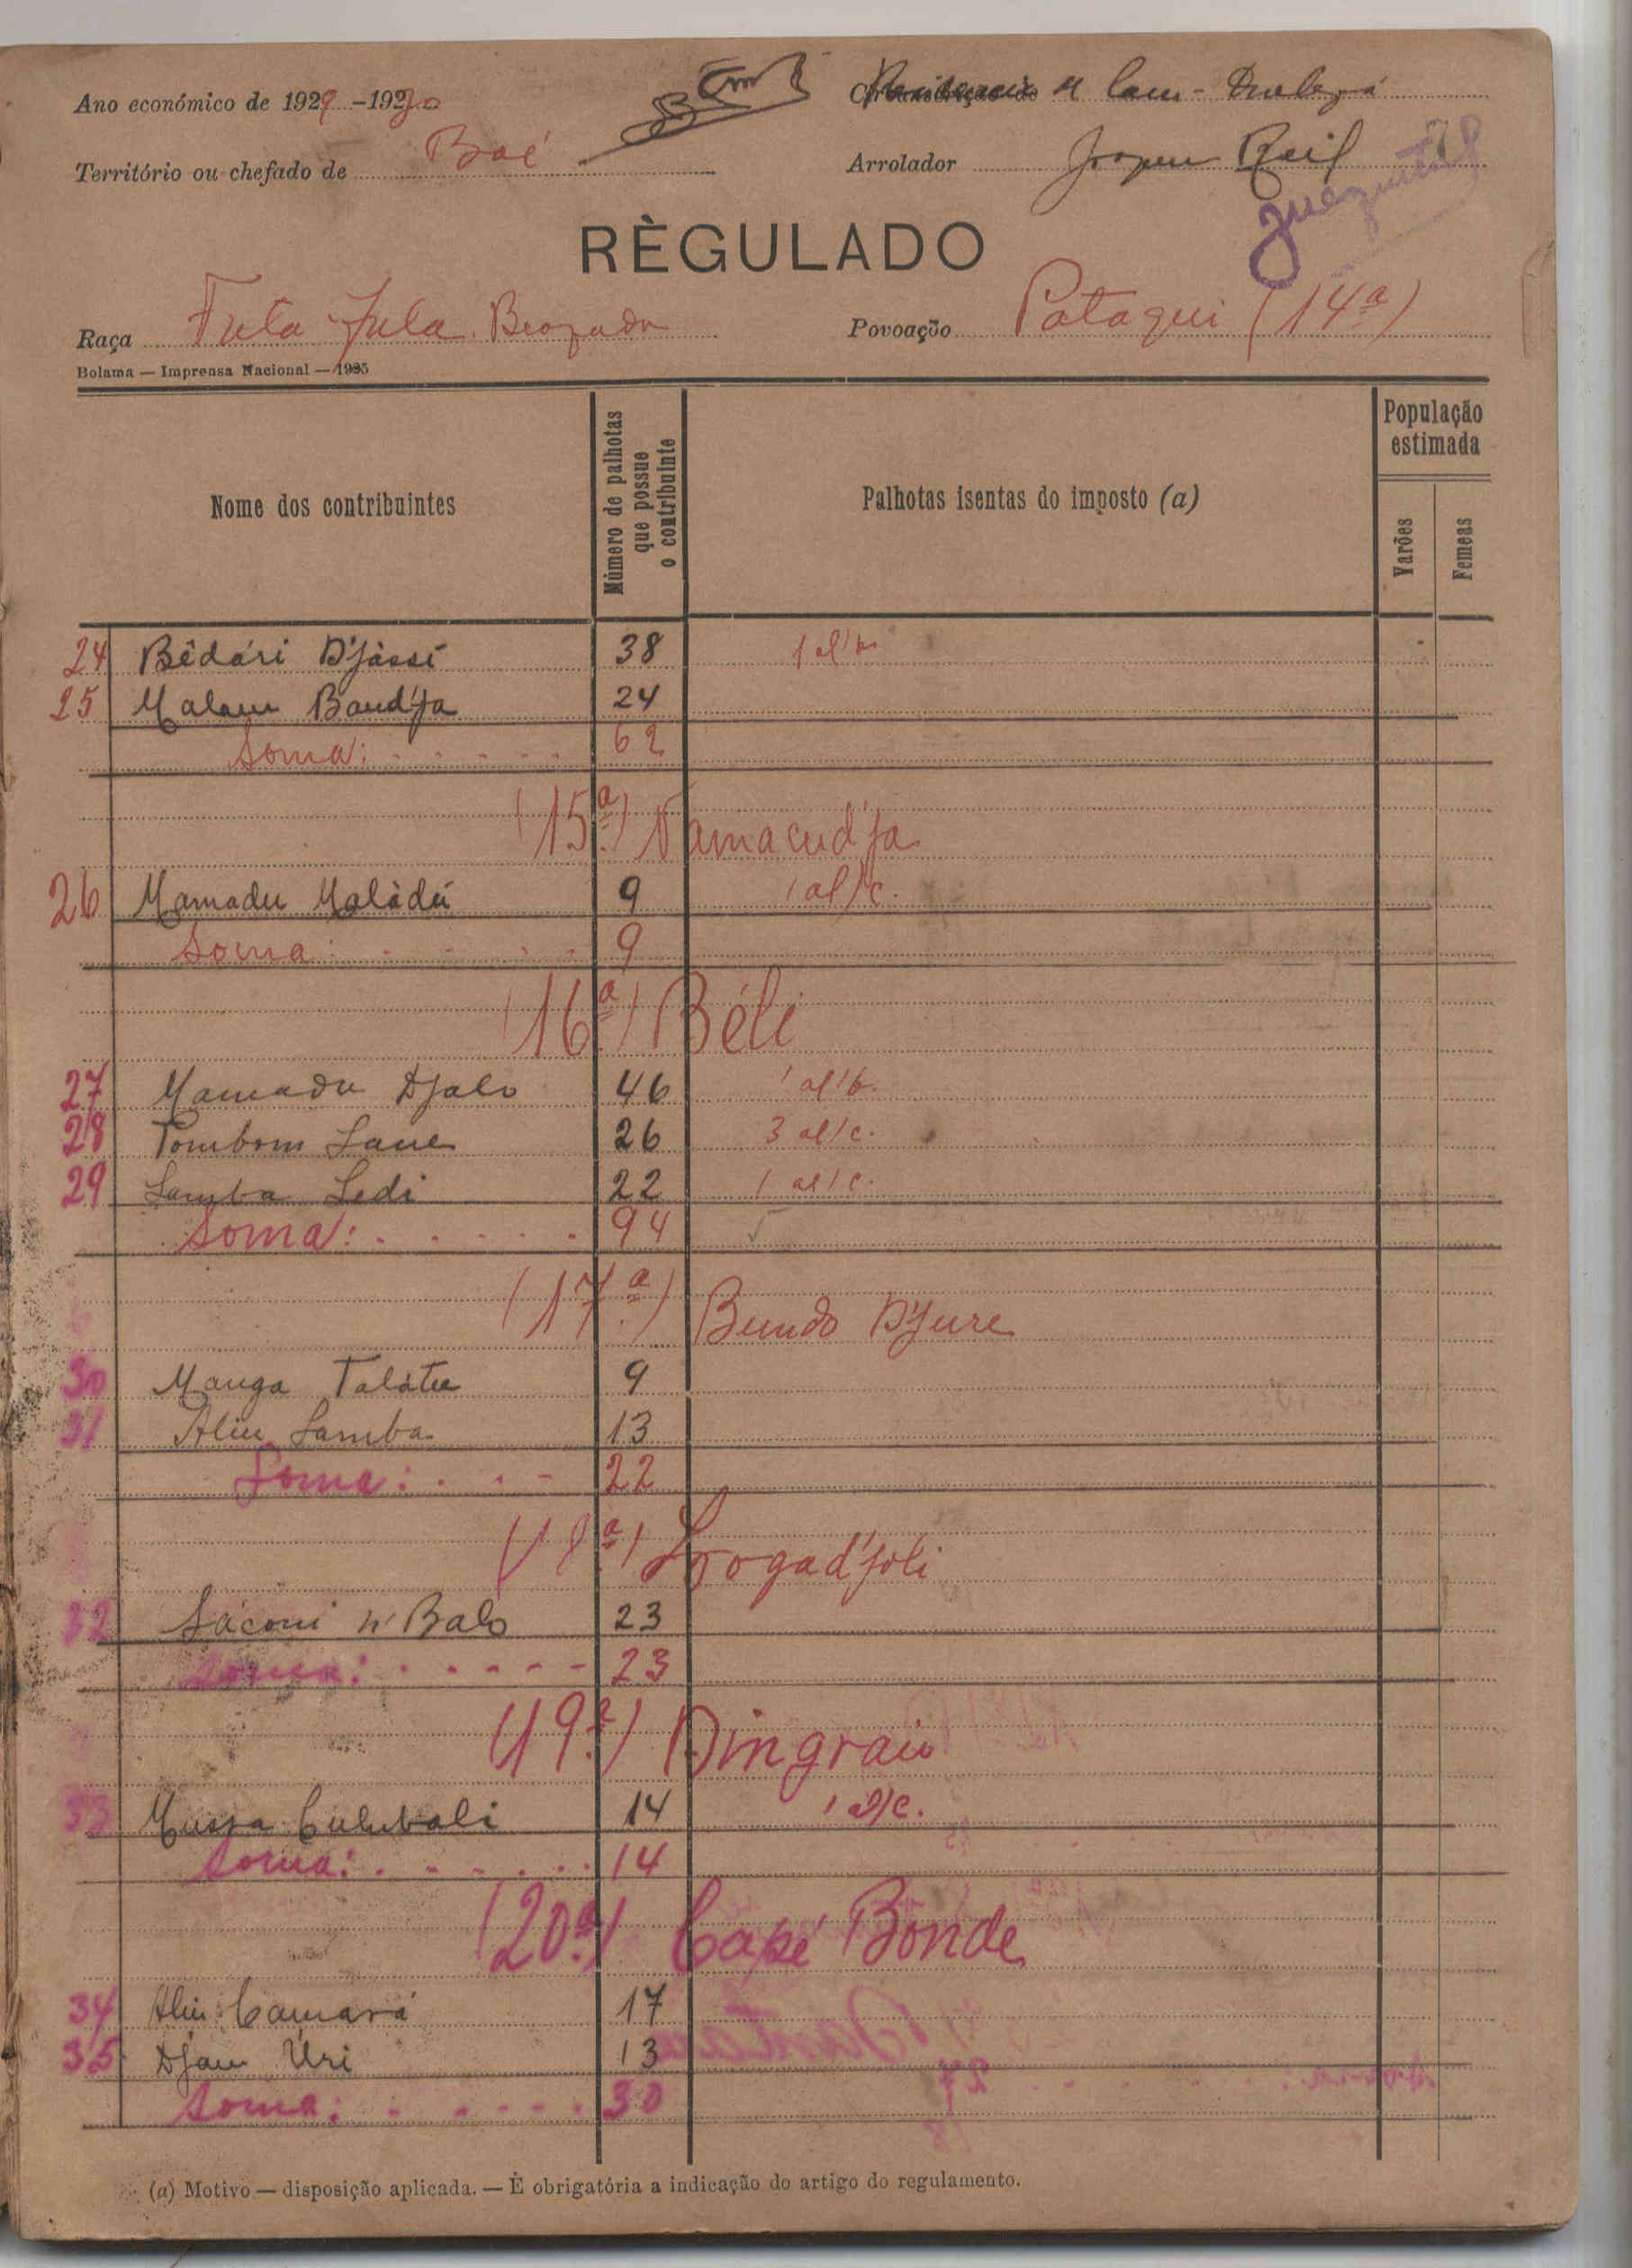 Ano económico de 1929-1930
Território ou chefado de Boé
Arrolador
RÈGULADO
Raça Fula Fula Beafada
Povoação Pataqui (14ª)
Bolama — Imprensa Nacional — 1925
Nome dos contribuintes
Número de palhotas que possue o contribuinte
Palhotas isentas do imposto (a)
População estimada
Varões
Femeas
24 Bêdári D'jássi 38 1 al/b.
25 Malam Baud'ja 24
Soma: 62
(15ª) Vamacud'ja
26 Mamadu Maládú 9 1 al/c.
Soma: 9
(16ª) Béli
27 Mamadu Djalo 46 1 al/b.
28 Pombom Sane 26 3 al/c.
29 Samba Ledi 22 1 al/c.
Soma: 94
(17ª) Bundo D'jure
30 Manga Talátu 9
31 Aliu Samba 13
Soma: 22
(18ª)
32 Sáconi n'Balo 23
Soma: 23
(19ª) Dingraiu
33 Mussa Culubali 14 1 al/c.
Soma: 14
(20ª) Capé Bonde
34 Aliu Camará 17
35 Djam Úri 13
Soma: 30
(a) Motivo — disposição aplicada. — É obrigatória a indicação do artigo do regulamento.